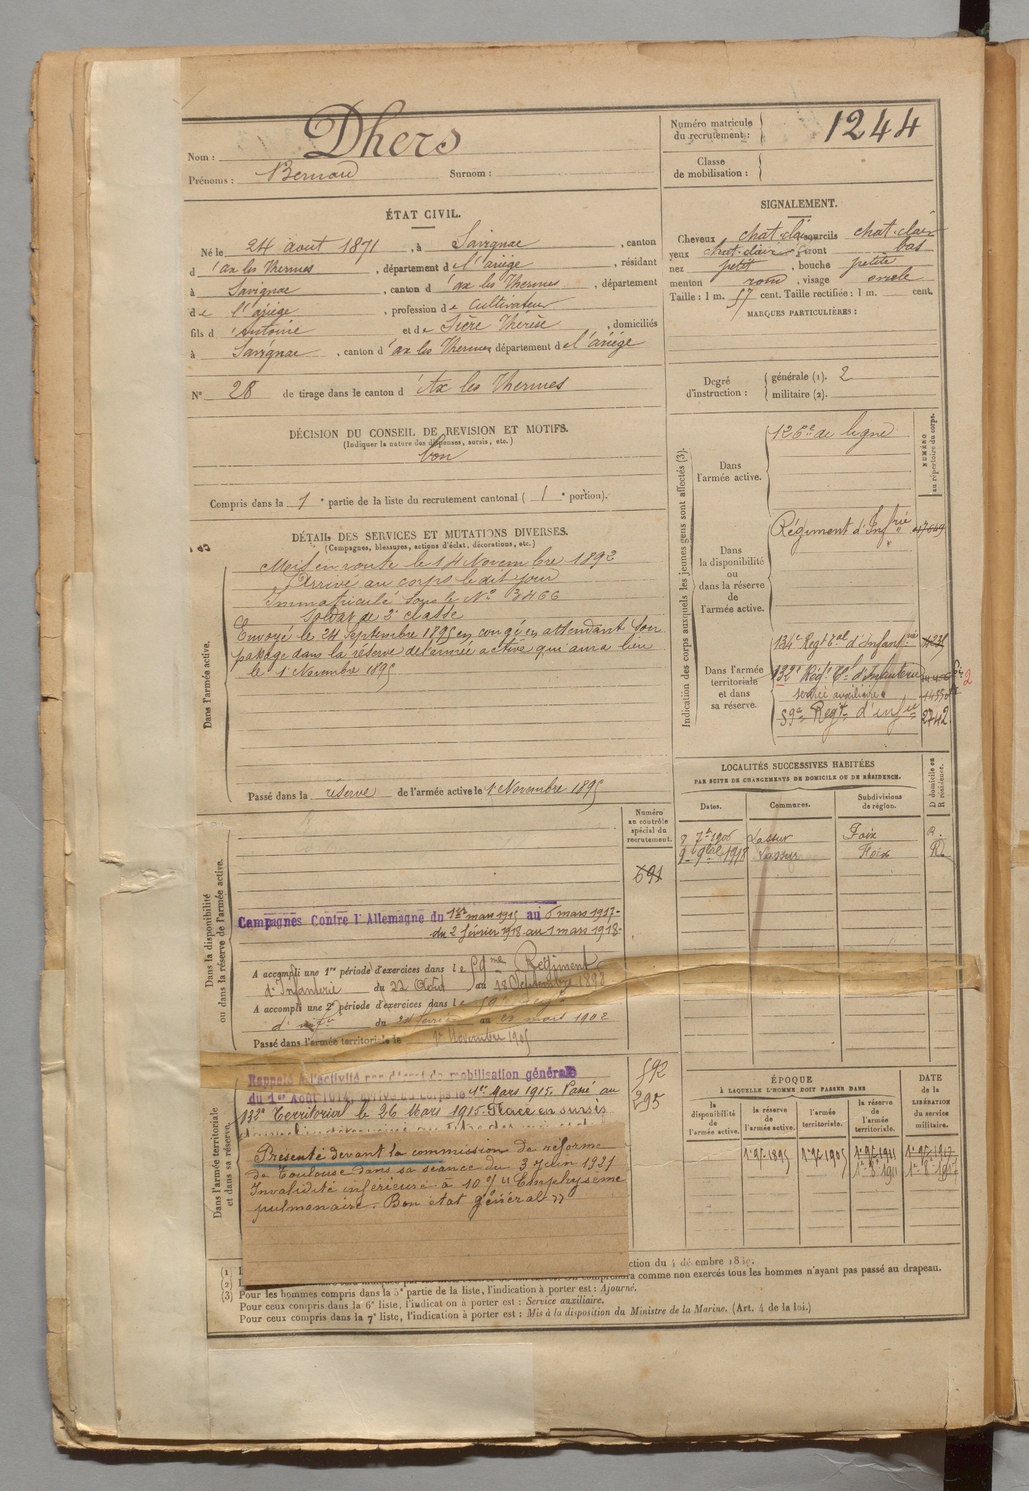 Nom : Dhers
Prénoms : Bernard Surnom :
Numéro matricule du recrutement : 1244
Classe de mobilisation :
ÉTAT CIVIL.
Né le 24 août 1871, à Savignac, canton
d'ax les Thermes, département de l'ariège, résidant
à Savignac, canton d'ax les Thermes, département
de l'ariège, profession de Cultivateur
fils d'Antoine et de Sère Thérèse, domiciliés
à Savignac, canton d'ax les Thermes département de l'ariège
N° 28 de tirage dans le canton d'Ax les Thermes
SIGNALEMENT.
Cheveux chat. clair sourcils chat. clair
yeux chat. clair front bas
nez petit, bouche petite
menton rond, visage ovale
Taille : 1 m. 57 cent. Taille rectifiée : 1 m. cent.
MARQUES PARTICULIÈRES :
Degré d'instruction : générale (1). 2
militaire (2).
DÉCISION DU CONSEIL DE REVISION ET MOTIFS.
(Indiquer la nature des dispenses, sursis, etc.)
bon
Compris dans la 1e partie de la liste du recrutement cantonal (1e portion).
DÉTAIL DES SERVICES ET MUTATIONS DIVERSES.
(Campagnes, blessures, actions d'éclat, décorations, etc.)
Dans l'armée active.
Mis en route le 14 Novembre 1892
Arrivé au corps le dit jour
Immatriculé sous le N° 3466
Soldat de 2e classe
Envoyé le 24 Septembre 1895 en congé en attendant son
passage dans la réserve de l'armée active qui aura lieu
le 1 Novembre 1895
Passé dans la réserve de l'armée active le 1 Novembre 1895
Indication des corps auxquels les jeunes gens sont affectés (3).
NUMÉRO au répertoire du corps.
Dans l'armée active.
126e de ligne
Dans la disponibilité ou dans la réserve de l'armée active.
Régiment d'Infrie
Dans l'armée territoriale et dans sa réserve.
134e Regt tal d'Infanterie
132e Régt tal d'Infanterie
service auxiliaire
59e Regt d'infie 2742
LOCALITÉS SUCCESSIVES HABITÉES
PAR SUITE DE CHANGEMENTS DE DOMICILE OU DE RÉSIDENCE.
Dates. Communes. Subdivisions de région. D domicile ou R résidence.
7bre 1906 Lassur Foix
9bre 1918 Lassur Foix R.
Numéro au contrôle spécial du recrutement.
691
Dans la disponibilité ou dans la réserve de l'armée active.
Campagnes Contre l'Allemagne du 1er mars 1915 au 6 mars 1917-
du 2 février 1918 au 1 mars 1918-
A accompli une 1re période d'exercices dans le 59me Régiment
d'Infanterie du 22 Août au 18 Septembre 1898
A accompli une 2e période d'exercices dans le 59e
d'infie du 24 février au 23 mars 1902
Passé dans l'armée territoriale le 1er Novembre 1905
Dans l'armée territoriale et dans sa réserve.
592
295
Rappelé à l'activité par décret de mobilisation générale
du 1er Août 1914, arrivé au corps le 1er Mars 1915. Passé au
132e Territorial le 26 Mars 1915. Placé en sursis
Présenté devant la commission de réforme
de Toulouse dans sa séance du 3 Juin 1927
Invalidité inférieure à 10 % "Emphysème
pulmonaire. Bon état général"
ÉPOQUE
À LAQUELLE L'HOMME DOIT PASSER DANS
la disponibilité de l'armée active. la réserve de l'armée active. l'armée territoriale. la réserve de l'armée territoriale.
DATE de la LIBÉRATION du service militaire.
1er 9bre 1895 1er 9bre 1905 1er 9bre 1911
ction du 4 décembre 1889.
comprendra comme non exercés tous les hommes n'ayant pas passé au drapeau.
(3) Pour les hommes compris dans la 5e partie de la liste, l'indication à porter est : Ajourné.
Pour ceux compris dans la 6e liste, l'indication à porter est : Service auxiliaire.
Pour ceux compris dans la 7e liste, l'indication à porter est : Mis à la disposition du Ministre de la Marine. (Art. 4 de la loi.)